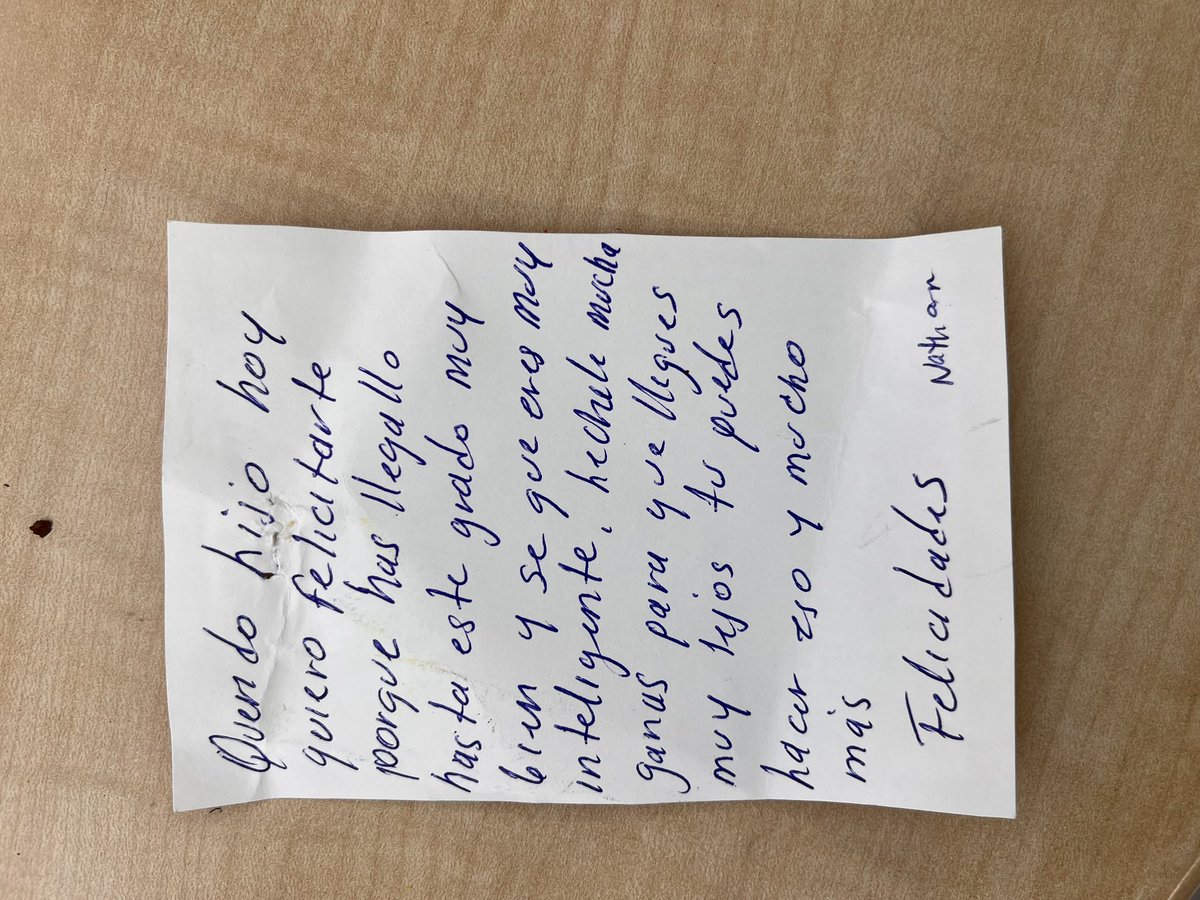 Querido hijo hoy
quiero felicitarte
porque has llegallo
hasta este grado muy
bien y se que eres muy
inteligente, hechale mucha
ganas para que llegues
muy lejos tu puedes
hacer eso y mucho
más
Felicidades Nathan